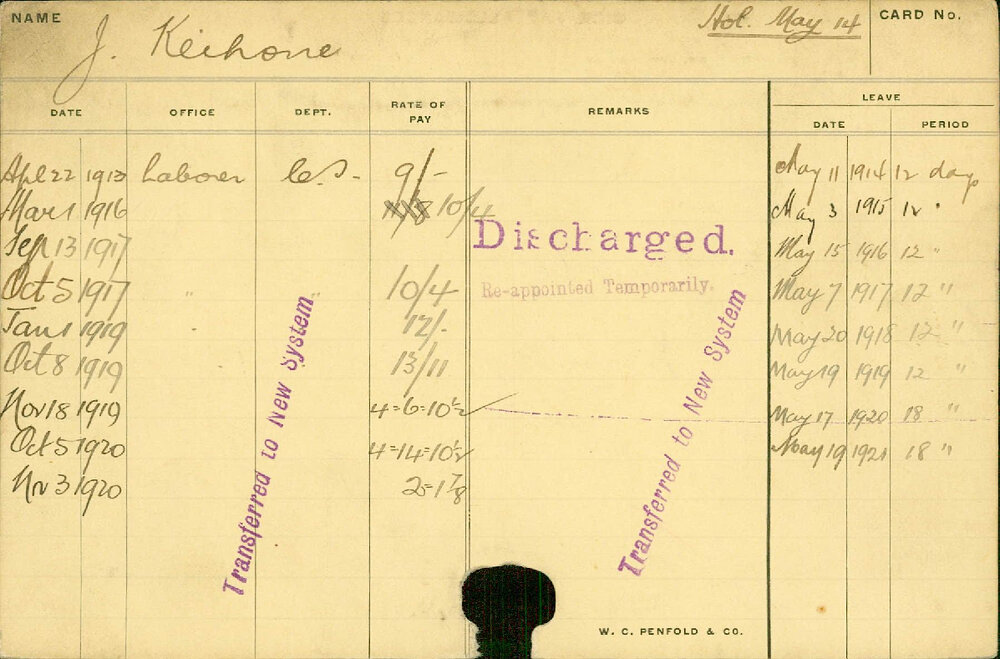 NAME J. Keihone Hol. May 14 CARD No.
DATE OFFICE DEPT. RATE OF PAY REMARKS LEAVE
DATE PERIOD
Apl 22 1913 Laborer C.S. 9/- May 11 1914 12 days
Mar 1 1916 10/4 May 3 1915 12 "
Sep 13 1917 Discharged. May 15 1916 12 "
Oct 5 1917 " " 10/4 Re-appointed Temporarily. May 7 1917 12 "
Jan 1 1919 12/- May 20 1918 12 "
Oct 8 1919 13/11 May 19 1919 12 "
Nov 18 1919 4=6=10½ May 17 1920 18 "
Oct 5 1920 4=14=10½ May 19 1921 18 "
Nv 3 1920
Transferred to New System
Transferred to New System
W. C. PENFOLD & CO.